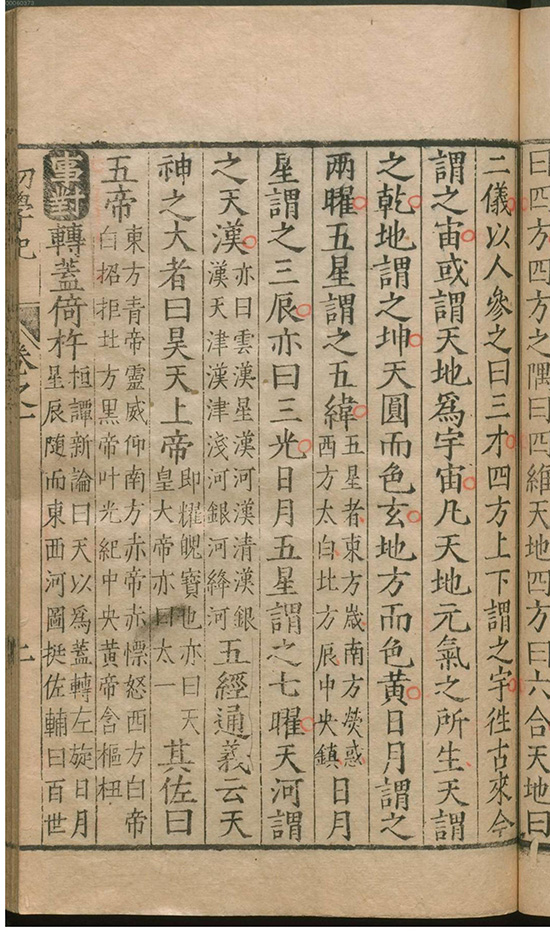 曰四方四方之隅曰四維天地四方曰六合天地曰
二儀以人參之曰三才四方上下謂之宇徃古來今
謂之宙或謂天地爲宇宙凡天地元氣之所生天謂
之乾地謂之坤天圓而色玄地方而色黄日月謂之
兩曜五星謂之五緯五星者東方歲南方熒惑西方太白北方辰中央鎮日月
星謂之三辰亦曰三光日月五星謂之七曜天河謂
之天漢亦曰雲漢星漢河漢清漢銀漢天津漢津淺河銀河絳河五經通義云天
神之大者曰昊天上帝即耀魄寶也亦曰天皇大帝亦曰太一其佐曰
五帝東方青帝靈威仰南方赤帝赤熛怒西方白帝白招拒北方黑帝叶光紀中央黄帝含樞杻
事對轉蓋倚杵桓譚新論曰天以爲蓋轉左旋日月星辰随而東西河圖挺佐輔曰百世
初學記 卷之一 二
00060373